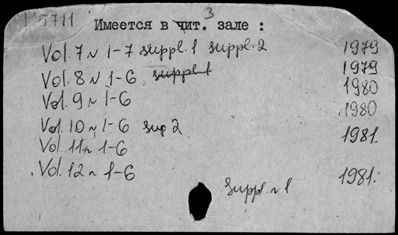 P 5711
3
Имеется в чит. зале :
Vol. 7 N 1-7 suppl. 1 suppl. 2 1979
Vol. 8 N 1-6 suppl. 1 1979
Vol. 9 N 1-6 1980
Vol. 10 N 1-6 sup 2 1980
Vol. 11 N 1-6 1981.
Vol. 12 N 1-6 1981.
Suppl. N 1